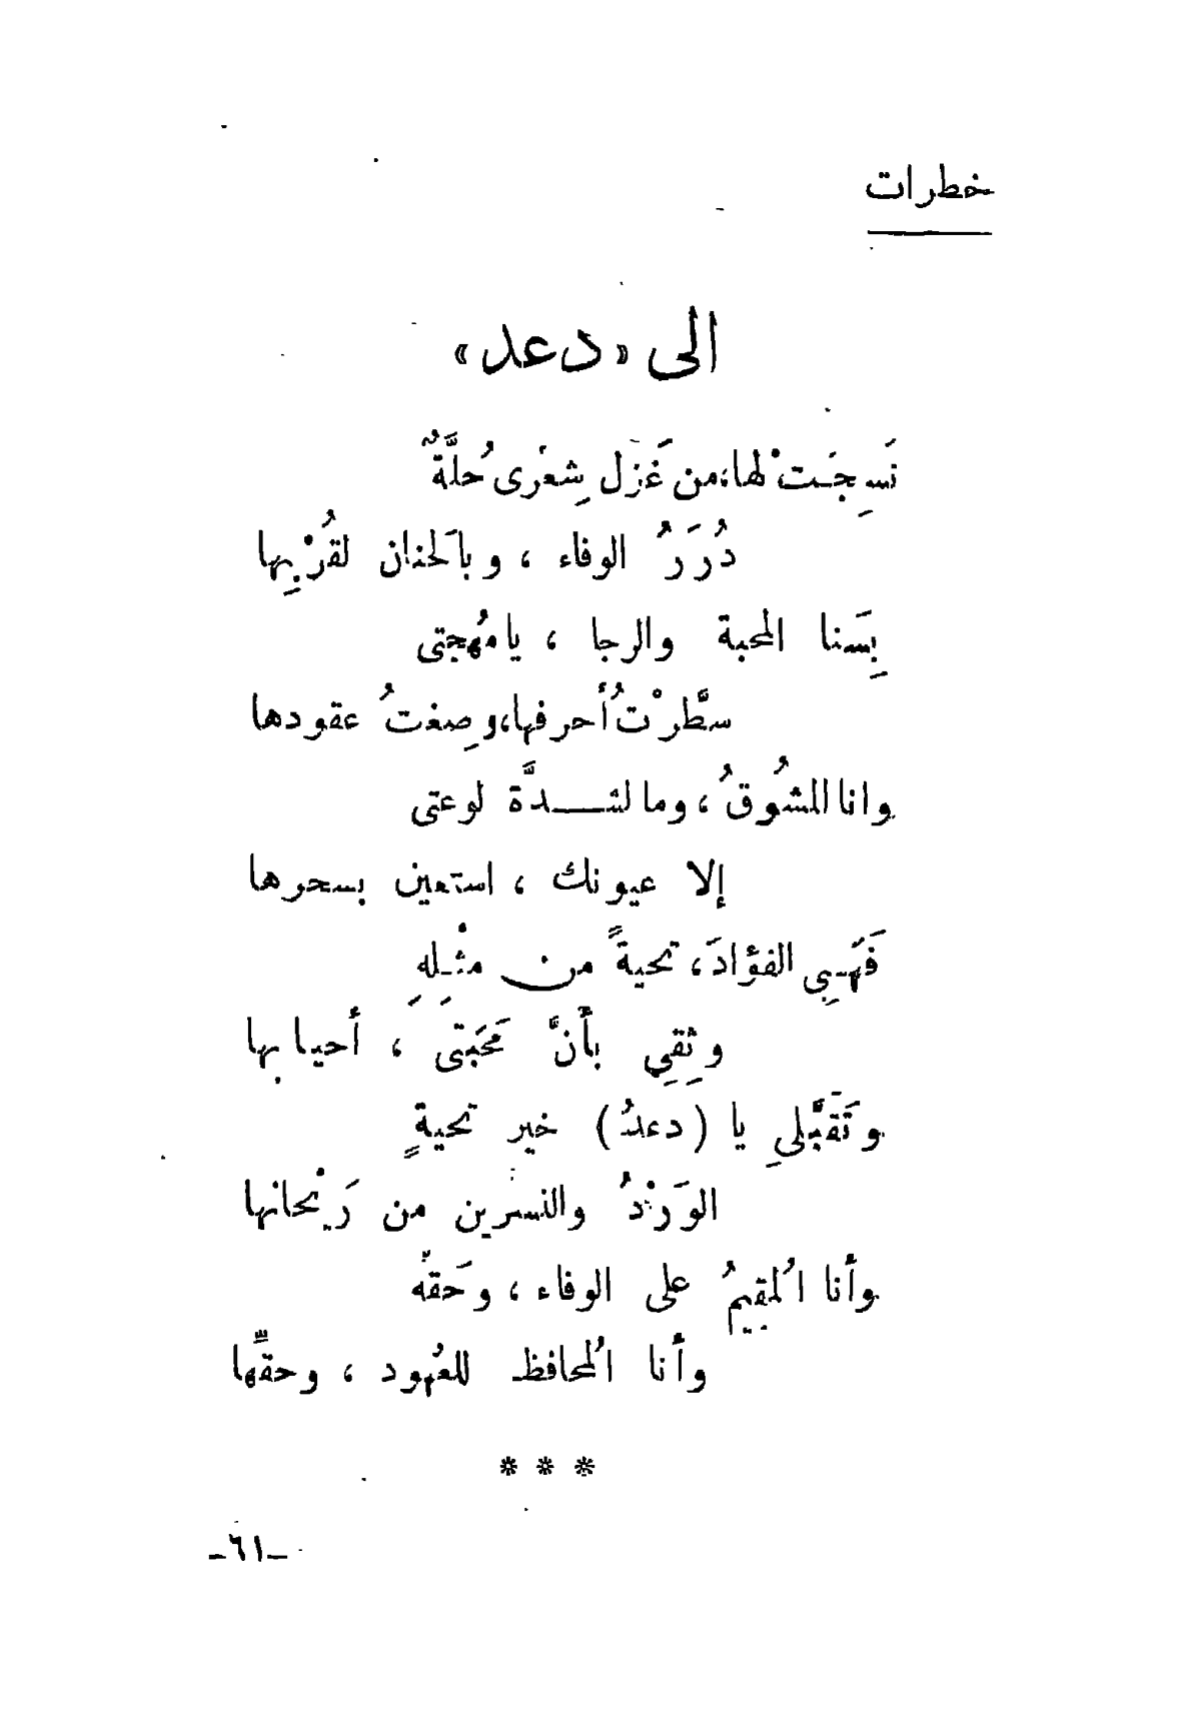 خطرات
الى «دعد»
نَسِجَتْ لها، من غَزَل شِعْرى حُلَّةٌ
دُرَرُ الوفاء ، وبالحَنان لقُرْبِها
بِسَنا المحبة والرجا ، يا مُهجتى
سطَّرْتُ أحرفها، وصِغتُ عقودها
وانا المشُوقُ ، وما لشدَّة لوعتى
إلا عيونك ، استعين بسحرها
فَهَبِى الفؤادَ ، تحيةً من مثْلِهِ
وثِقِي بأنَّ مَحَبَتى ، أحيا بها
وتَقَبَّلِى يا (دعدُ) خير تحيةٍ
الوَرْدُ والنسرين من رَيْحانها
وأنا المُقيمُ على الوفاء ، وحَقهُ
وأنا المُحافظ للعُهود ، وحقِّها
* * *
-٦١-